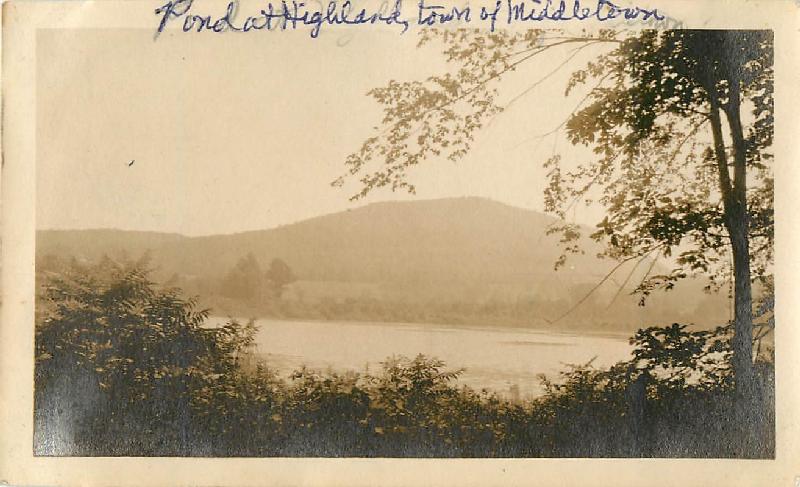 Pond at Highland, town of Middletown